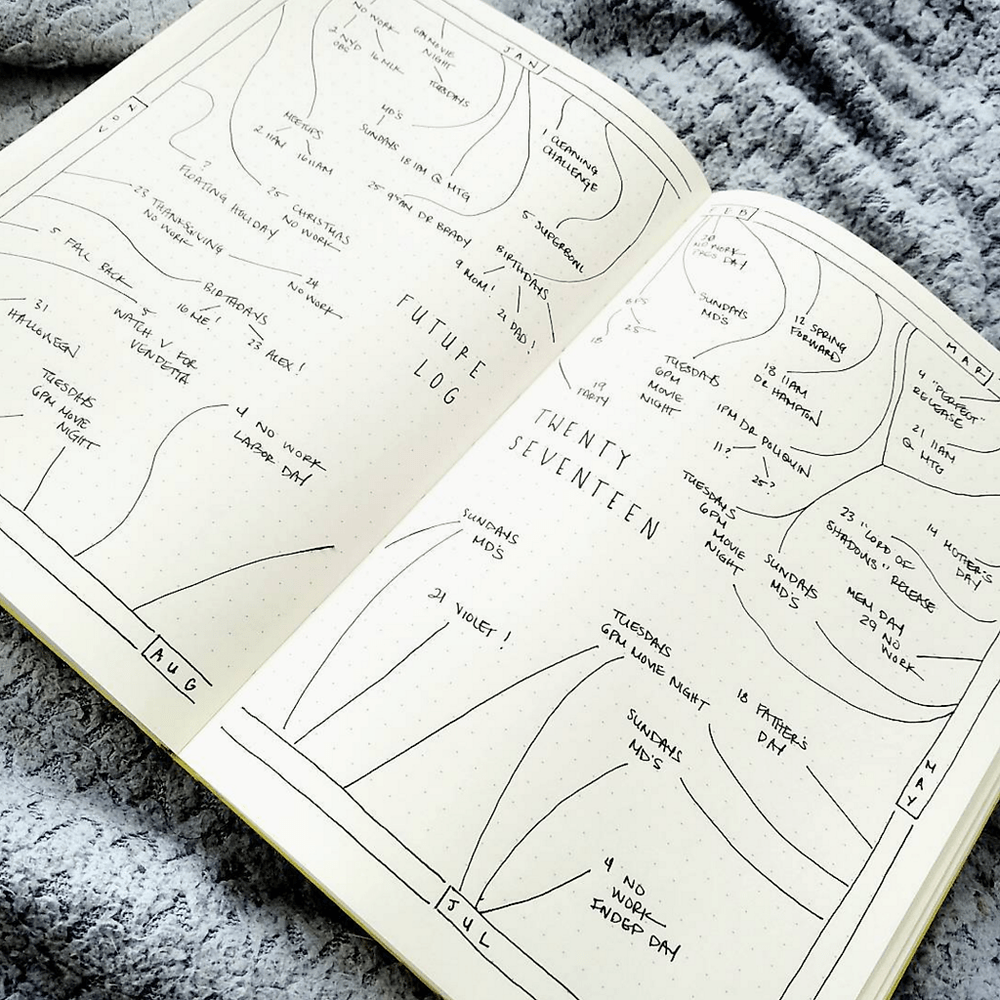 NO WORK
2 NYD
OBS
16 MLK
6PM MOVIE
NIGHT
TUESDAYS
JAN
NOV
MEETUPS
2 11AM
16 11AM
MD'S
SUNDAYS
18 1PM Q MTG
25 9:15AM DR BRADY
1 CLEANING
CHALLENGE
5 SUPERBOWL
BIRTHDAYS
9 MOM!
21 DAD!
?
FLOATING HOLIDAY
25 CHRISTMAS
NO WORK
23 THANKSGIVING
NO WORK
24
NO WORK
5 FALL BACK
BIRTHDAYS
10 ME!
23 ALEX!
5
WATCH V FOR
VENDETTA
31
HALLOWEEN
TUESDAYS
6PM MOVIE
NIGHT
4
NO WORK
LABOR DAY
AUG
FUTURE
LOG
FEB
20
NO WORK
PRES DAY
SUNDAYS
MD'S
25
18
19
PARTY
TUESDAYS
6PM
MOVIE
NIGHT
12 SPRING
FORWARD
13 11AM
DR HAMPTON
1PM DR POLIQUIN
11?
25?
MAR
4 "PERFECT"
RELEASE
21 11AM
Q MTG
TWENTY
SEVENTEEN
TUESDAYS
6PM
MOVIE
NIGHT
SUNDAYS
MD'S
23 "LORD OF
SHADOWS" RELEASE
14 MOTHER'S
DAY
MEM DAY
29 NO
WORK
MAY
SUNDAYS
MD'S
21 VIOLET!
TUESDAYS
6PM MOVIE NIGHT
18 FATHER'S
DAY
SUNDAYS
MD'S
4 NO
WORK
INDEP DAY
JUL